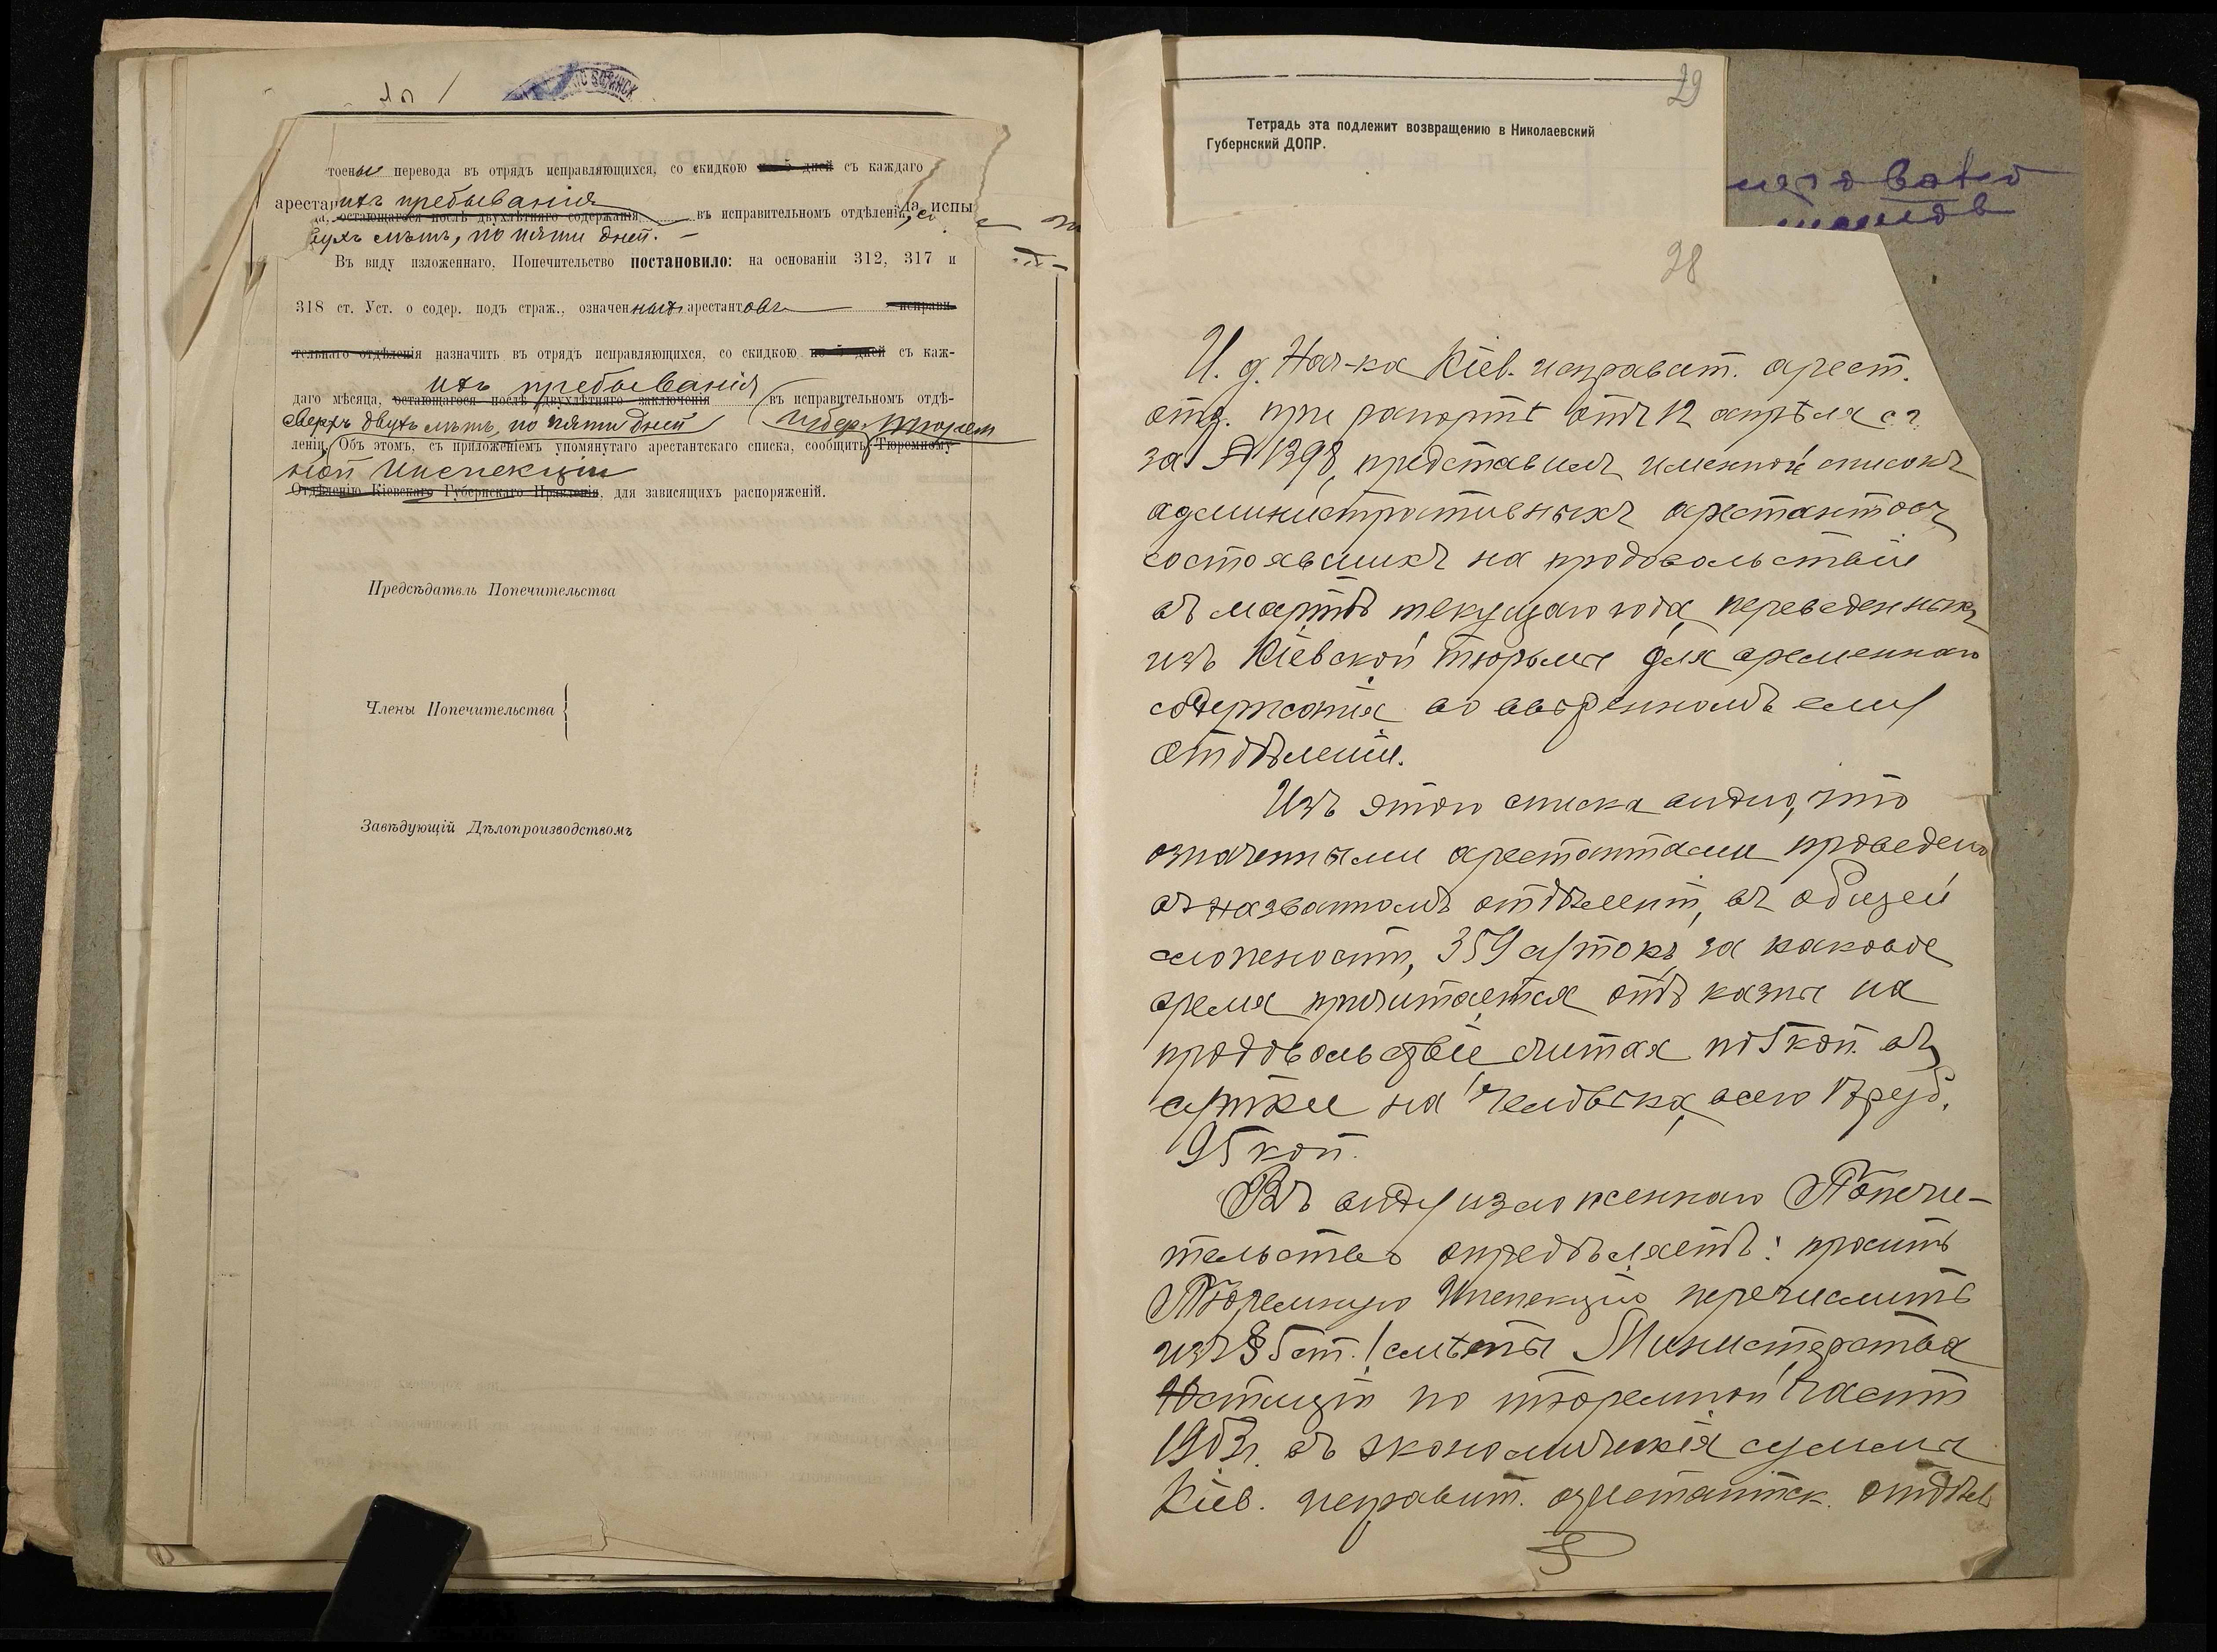 тоены перевода въ отрядъ исправляющихся, со скидкою по 5 дней съ каждаго
арестан ихъ пребыванія да испы
остающагося послѣ двухлѣтняго содержанія въ исправительномъ отдѣленіи,
двухъ лѣтъ, по пяти дней. –
Въ виду изложеннаго, Попечительство постановило: на основаніи 312, 317 и
318 ст. Уст. о содер. подъ страж., означенныхъ арестантовъ исправи-
тельнаго отдѣленія назначить въ отрядъ исправляющихся, со скидкою по 5 дней съ каж-
ихъ пребыванія
даго мѣсяца, остающагося послѣ двухлѣтняго заключенія въ исправительномъ отдѣ-
сверхъ двухъ лѣтъ, по пяти дней Губер. Тюрем
леніи, Объ этомъ, съ приложеніемъ упомянутаго арестантскаго списка, сообщить Тюремному
ной Инспекціи
Отдѣленію Кіевскаго Губернскаго Правленія, для зависящихъ распоряженій.
Предсѣдатель Попечительства
Члены Попечительства
Завѣдующій Дѣлопроизводствомъ
29
Тетрадь эта подлежит возвращению в Николаевский
Губернский ДОПР.
28
И. д. Нач-ка Кіев. исправит. арест.
отд. при рапортѣ отъ 12 апрѣля с. г.
за № 1398, представилъ именной списокъ
административныхъ арестантовъ
состоявшихъ на продовольствіи
въ мартѣ текущаго года, переведенныхъ
изъ Кіевской тюрьмы для временнаго
содержанія во ввѣренномъ ему
отдѣленіи.
Изъ этого списка видно, что
означенными арестантами проведено
въ названномъ отдѣленіи, въ общей
сложности, 359 сутокъ, за каковое
время причитается отъ казны на
продовольствіе считая по 5 коп. въ
сутки на человѣка, всего 17 руб.
95 коп.
Въ виду изложеннаго Попечи-
тельство опредѣляетъ: просить
Тюремную Инспекцію перечислить
изъ § 5 ст. 1 смѣты Министерства
Юстиціи по тюремной части
1903 г. въ экономическія суммы
Кіев. исправит. арестантск. отдѣл